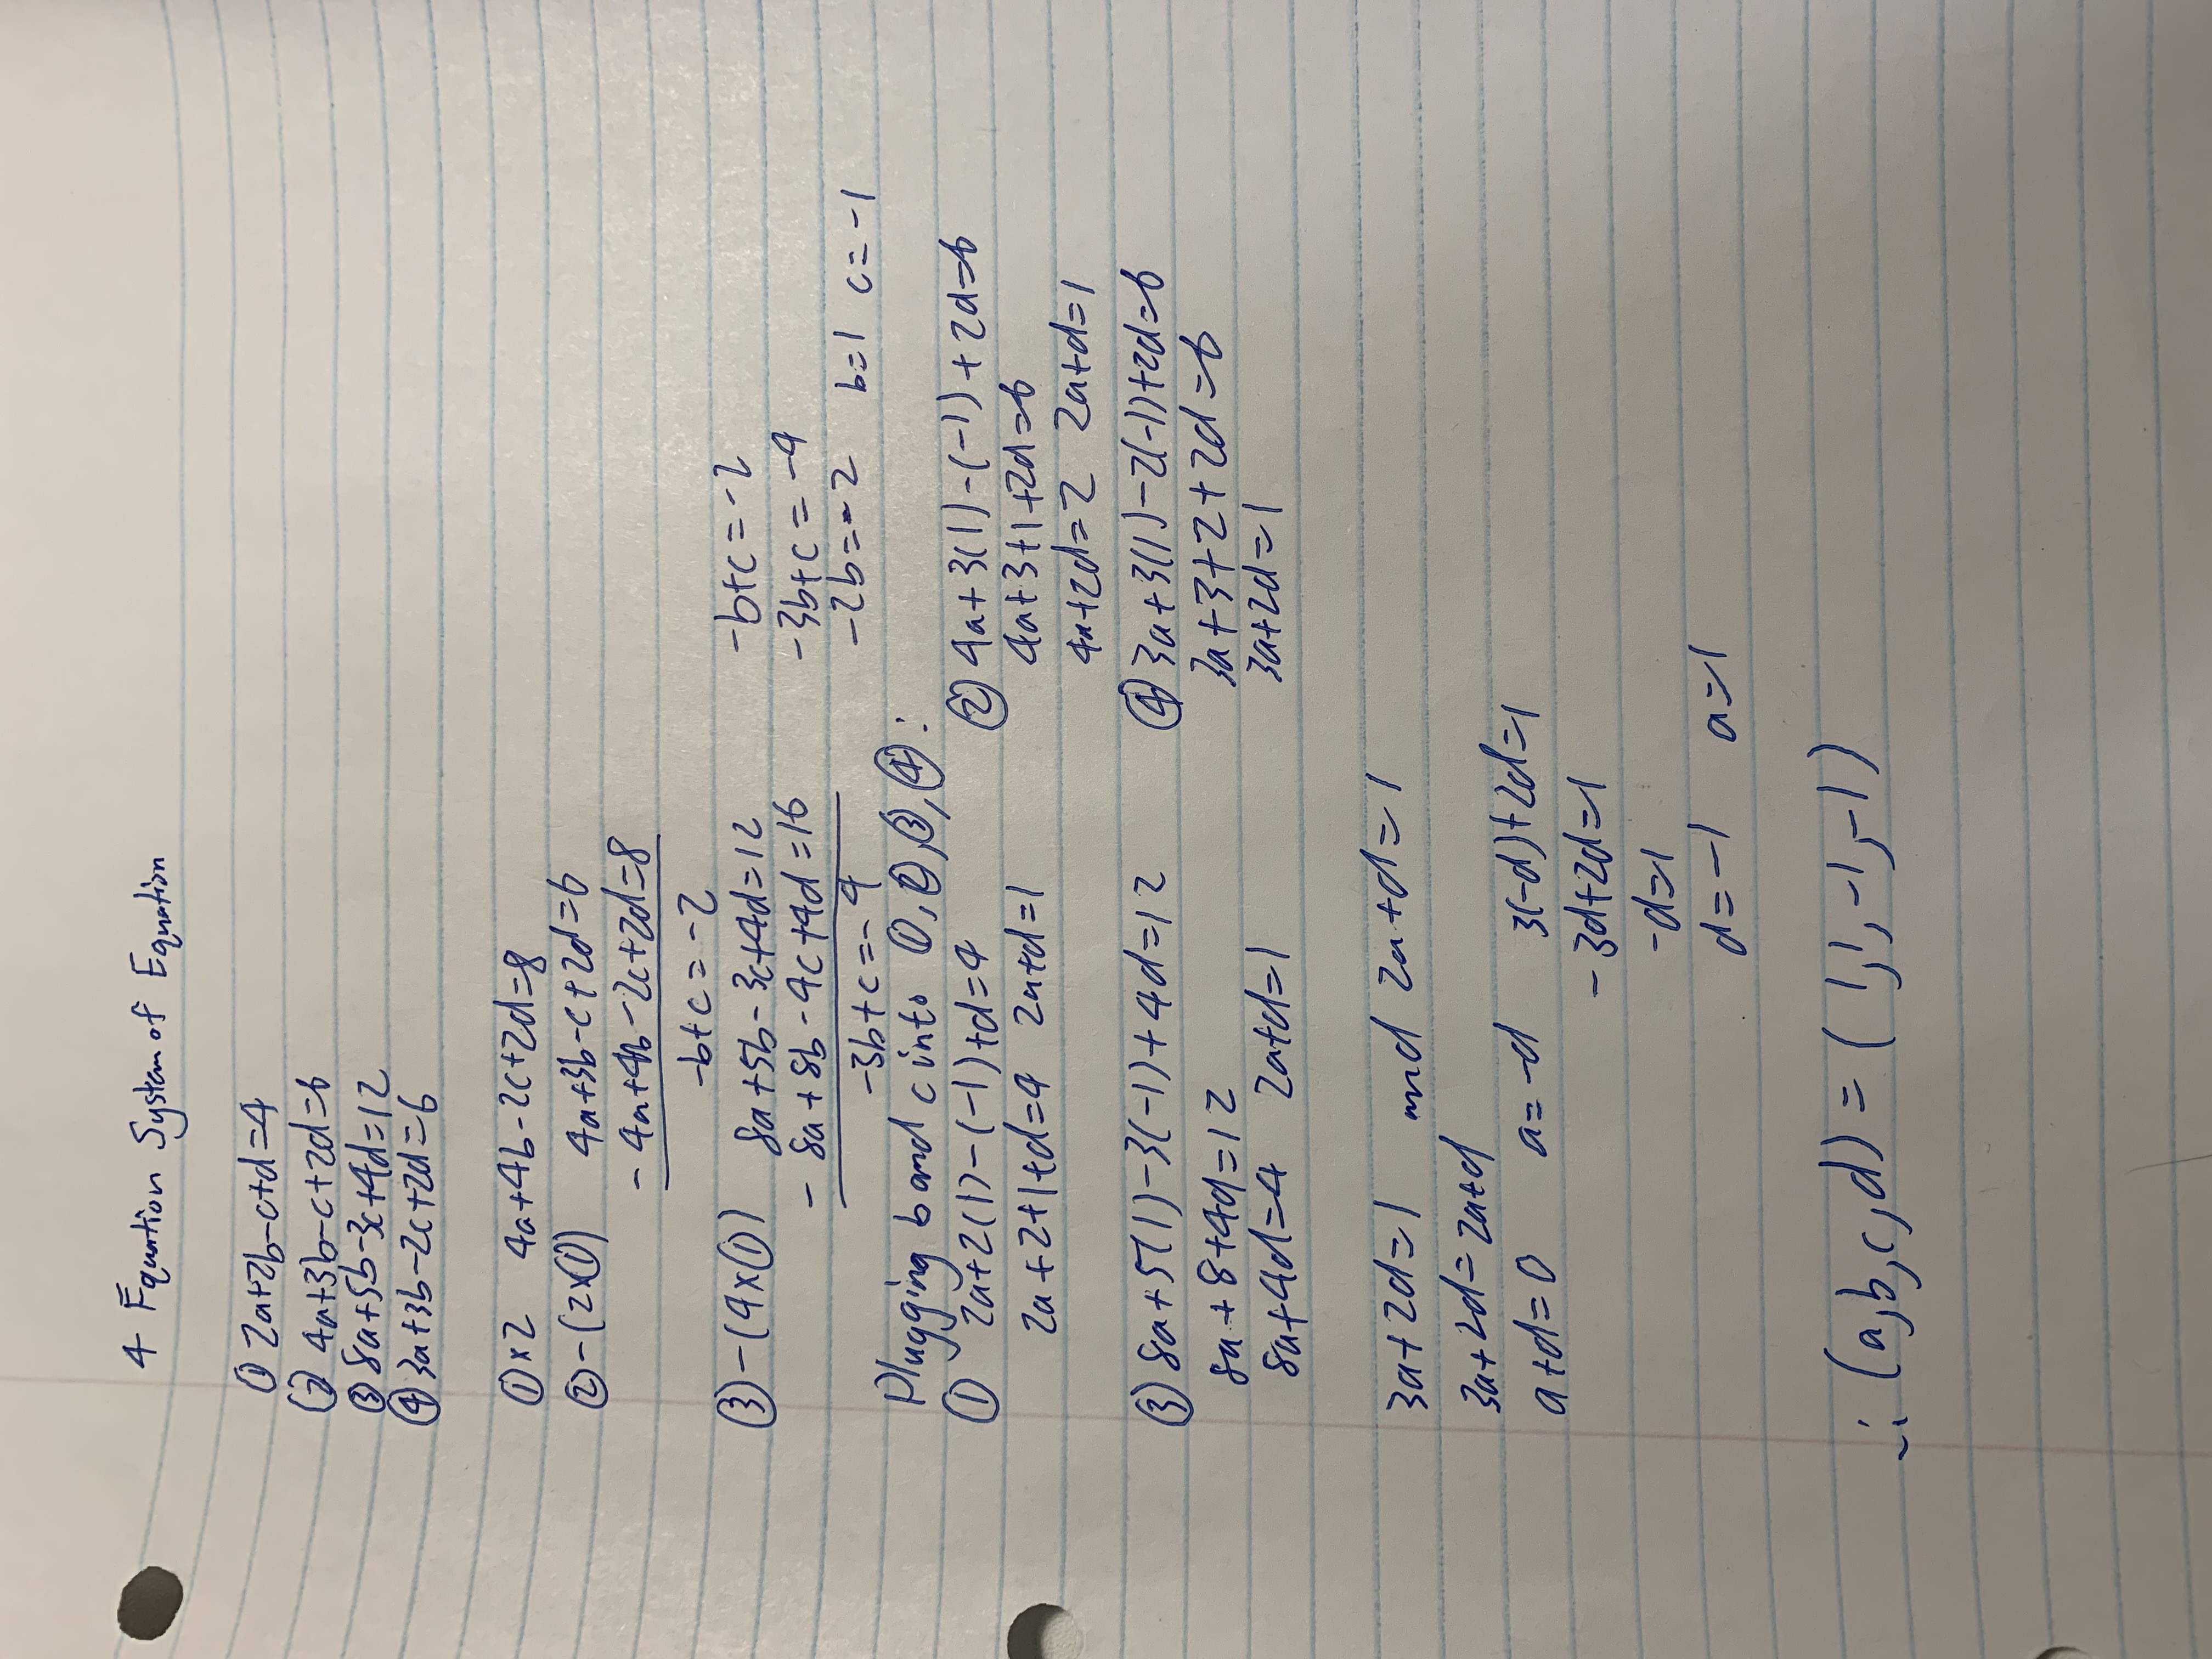 4 Equation System of Equation
① 2a+2b-c+d=4
② 4a+3b-c+2d=6
③ 8a+5b-3c+4d=12
④ 3a+3b-2c+2d=6
①×2 4a+4b-2c+2d=8
②-(2×①) 4a+3b-c+2d=6
- 4a+4b-2c+2d=8
-b+c=-2
③-(4×①) 8a+5b-3c+4d=12
- 8a+8b-4c+4d=16
-3b+c=-4
-b+c=-2
-3b+c=-4
-2b=-2 b=1 c=-1
Plugging b and c into ①,②,③,④:
① 2a+2(1)-(-1)+d=4
2a+2+1+d=4 2a+d=1
② 4a+3(1)-(-1)+2d=6
4a+3+1+2d=6
4a+2d=2 2a+d=1
③ 8a+5(1)-3(-1)+4d=12
8a+8+4d=12
8a+4d=4 2a+d=1
④ 3a+3(1)-2(-1)+2d=6
3a+3+2+2d=6
3a+2d=1
3a+2d=1 and 2a+d=1
3a+2d=2a+d
a+d=0 a=-d 3(-d)+2d=1
-3d+2d=1
-d=1
d=-1 a=1
∴ (a,b,c,d)=(1,1,-1,-1)